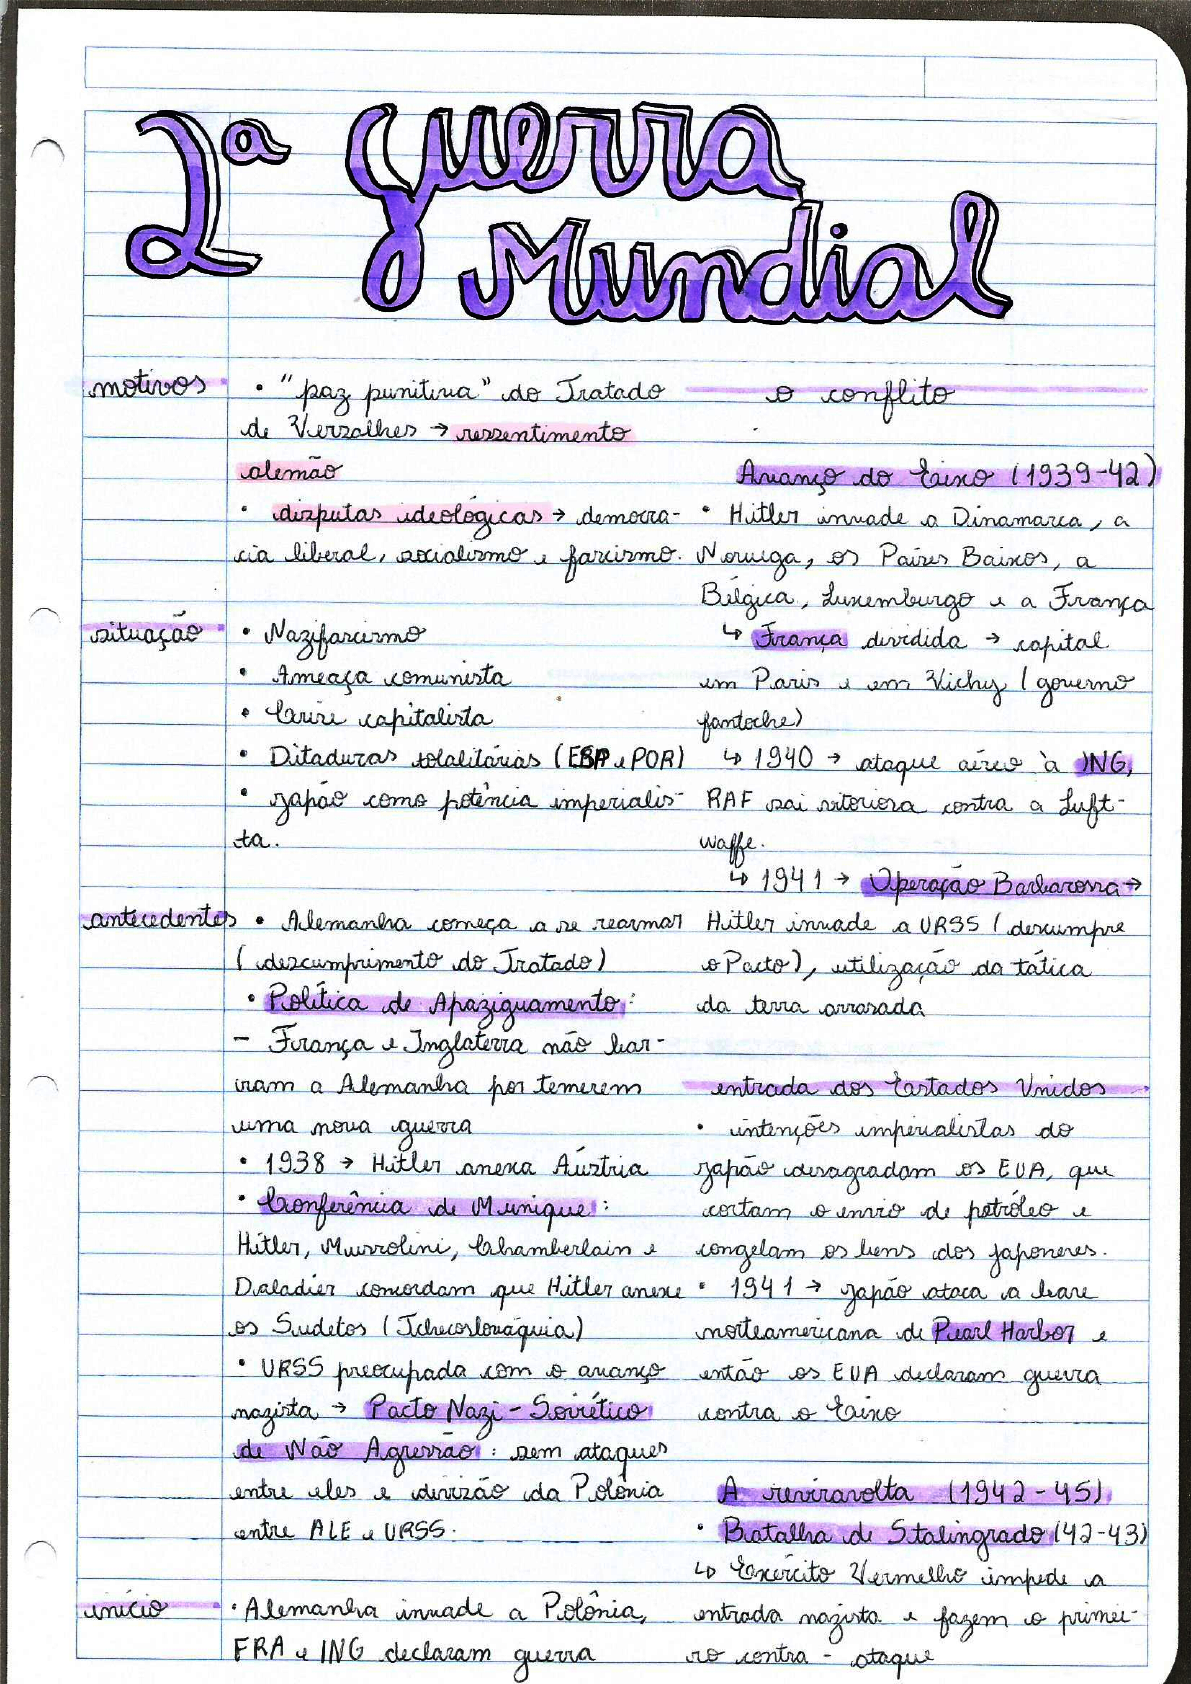 2ª guerra
Mundial
motivos
• "paz punitiva" do Tratado
de Versalhes → ressentimento
alemão
• disputas ideológicas → democra-
cia liberal, socialismo e fascismo.
situação
• Nazifascismo
• Ameaça comunista
• Crise capitalista
• Ditaduras totalitárias (ESP e POR)
• Japão como potência imperialis-
ta.
antecedentes
• Alemanha começa a se rearmar
(descumprimento do Tratado)
• Política de Apaziguamento:
- França e Inglaterra não bar-
ram a Alemanha por temerem
uma nova guerra
• 1938 → Hitler anexa Áustria
• Conferência de Munique:
Hitler, Mussolini, Chamberlain e
Daladier concordam que Hitler anexe
os Sudetos (Tchecoslováquia)
• URSS preocupada com o avanço
nazista → Pacto Nazi-Soviético
de Não Agressão: sem ataques
entre eles e divisão da Polônia
entre ALE e URSS.
início
• Alemanha invade a Polônia,
FRA e ING declaram guerra
o conflito
Avanço do Eixo (1939-42)
• Hitler invade a Dinamarca, a
Noruega, os Países Baixos, a
Bélgica, Luxemburgo e a França
↳ França dividida → capital
em Paris e em Vichy (governo
fantoche)
↳ 1940 → ataque aéreo à ING,
RAF sai vitoriosa contra a Luft-
waffe.
↳ 1941 → Operação Barbarossa →
Hitler invade a URSS (descumpre
o Pacto), utilização da tática
da terra arrasada
entrada dos Estados Unidos
• intenções imperialistas do
Japão desagradam os EUA, que
cortam o envio de petróleo e
congelam os bens dos japoneses.
• 1941 → Japão ataca a base
norteamericana de Pearl Harbor e
então os EUA declaram guerra
contra o Eixo
A reviravolta (1942-45)
• Batalha de Stalingrado (42-43)
↳ Exército Vermelho impede a
entrada nazista e fazem o primei-
ro contra-ataque